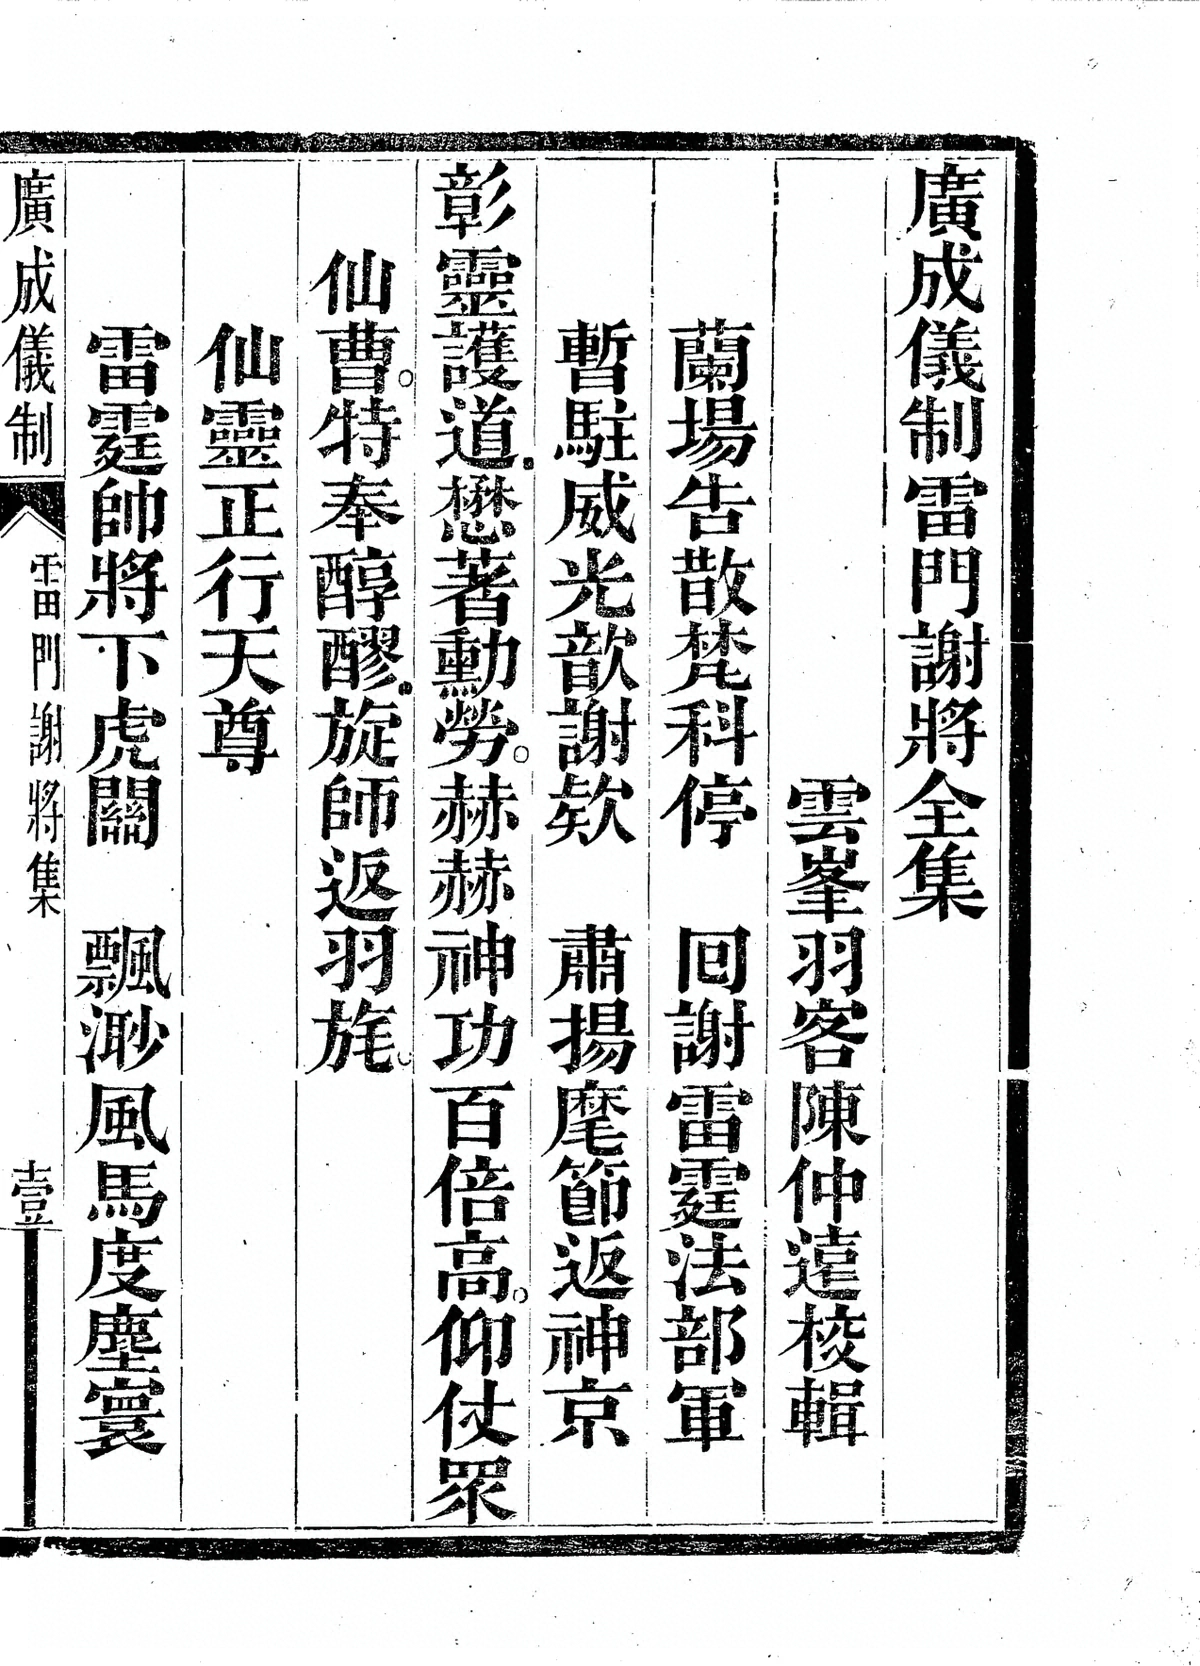 廣成儀制雷門謝將全集
雲峯羽客陳仲遠校輯
蘭塲告散梵科停　回謝雷霆法部軍
暫駐威光歆謝欵　肅揚麾節返神京
彰靈護道懋著勳勞。赫赫神功百倍高。仰仗眾
仙曹。特奉醇醪。旋師返羽旄。
仙靈正行天尊
雷霆帥將下虎關　飄渺風馬度塵寰
廣成儀制　雷門謝將集　壹